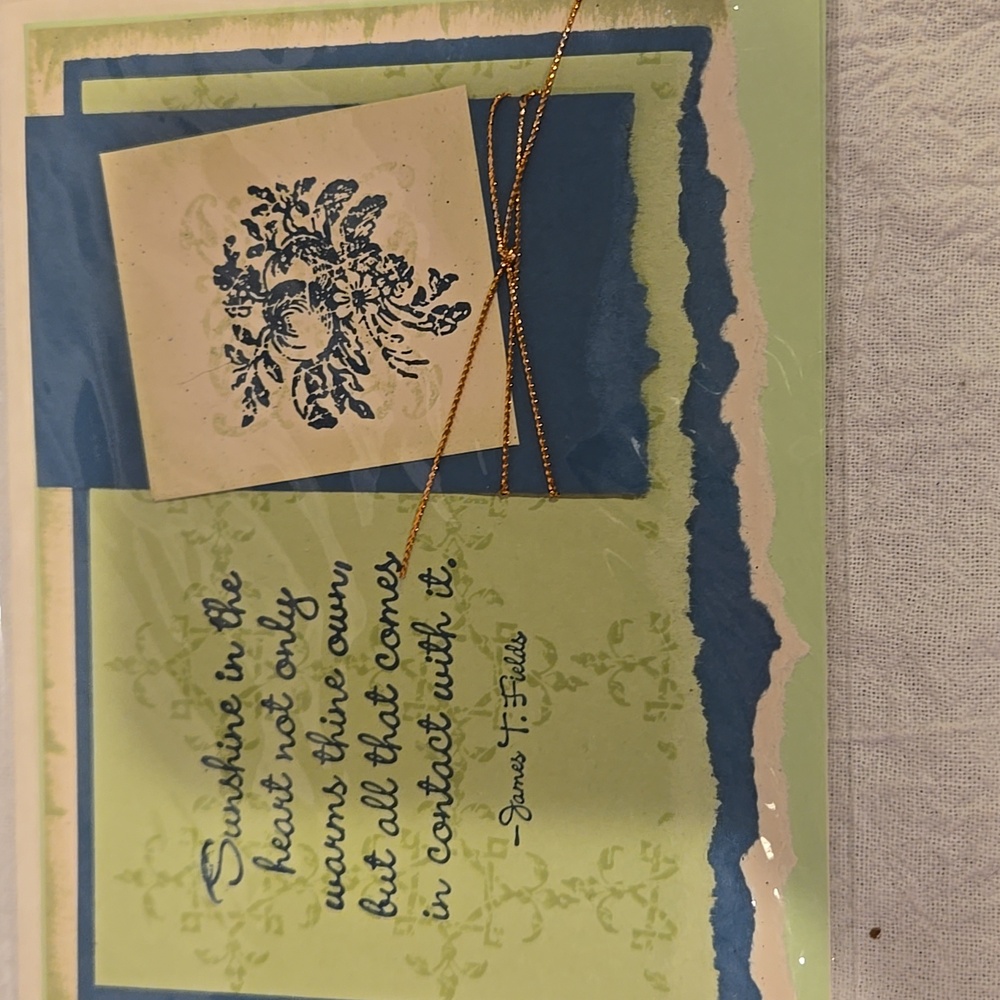 Sunshine in the
heart not only
warms thine own,
but all that comes
in contact with it.
—James T. Fields